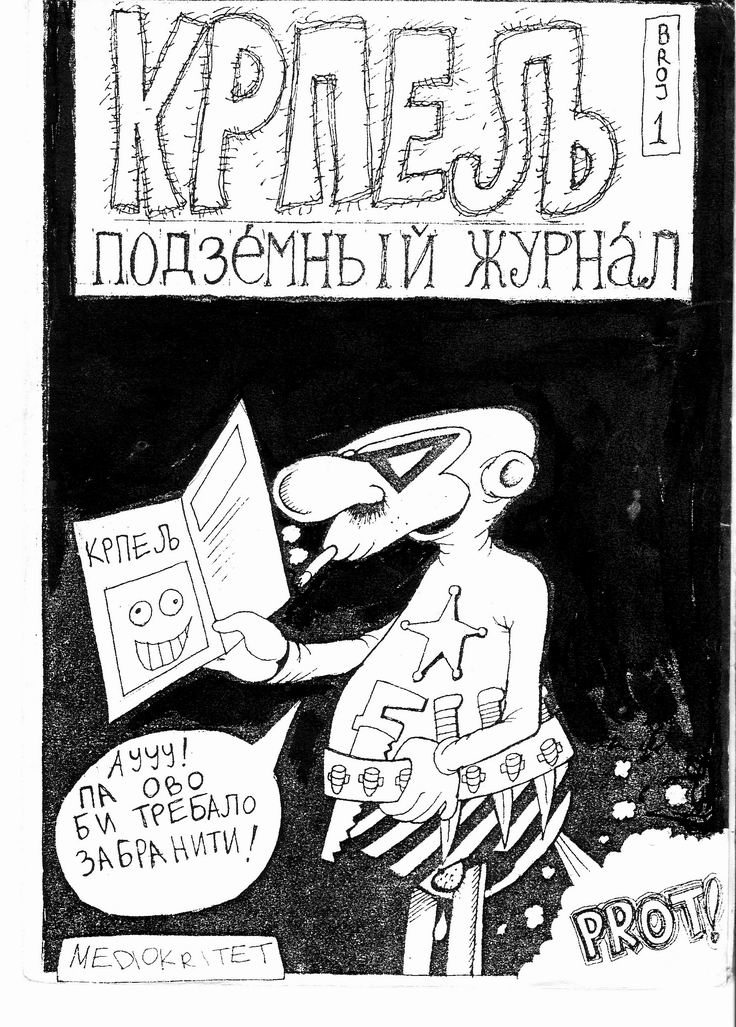 КРПЕЉ
BROJ 1
ПОДЗЕ́МНЫЙ ЖУРНА́Л
КРПЕЉ
АУУУ!
ПА ОВО
БИ ТРЕБАЛО
ЗАБРАНИТИ!
PROT!
MEDIOKRITET